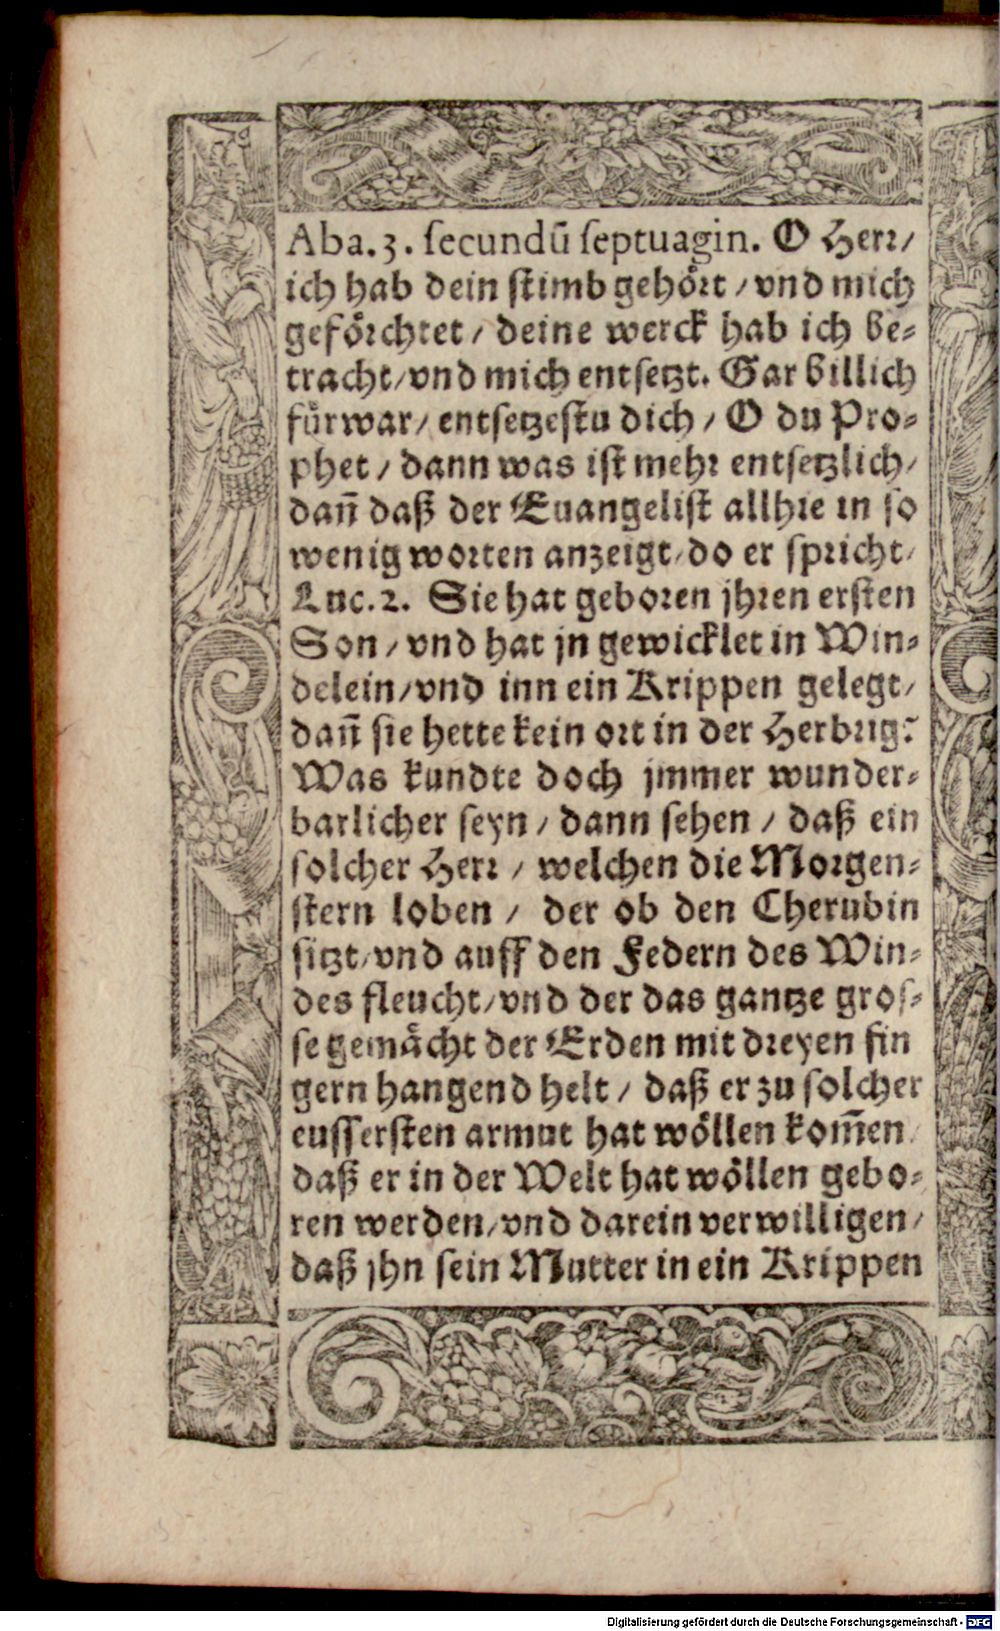 Aba.3. secundū septuagin. O Herr/
ich hab dein stimb gehört / vnd mich
geförchtet / deine werck hab ich be⸗
tracht/vnd mich entsetzt. Gar billich
fürwar/ entsetzestu dich / O du Pro⸗
phet / dann was ist mehr entsetzlich/
dañ daß der Euangelist allhie in so
wenig worten anzeigt/do er spricht/
Luc.2. Sie hat geboren jhren ersten
Son / vnd hat jn gewicklet in Win⸗
delein/vnd inn ein Krippen gelegt/
dañ sie hette kein ort in der Herbrig?
Was kundte doch jmmer wunder⸗
barlicher seyn / dann sehen / daß ein
solcher Herr / welchen die Morgen⸗
stern loben / der ob den Cherubin
sitzt/vnd auff den Federn des Win⸗
des fleucht/vnd der das gantze gros⸗
se gemächt der Erden mit dreyen fin
gern hangend helt / daß er zu solcher
eussersten armut hat wöllen kom̄en/
daß er in der Welt hat wöllen gebo⸗
ren werden/vnd darein verwilligen/
daß jhn sein Mutter in ein Krippen
Digitalisierung gefördert durch die Deutsche Forschungsgemeinschaft - DFG